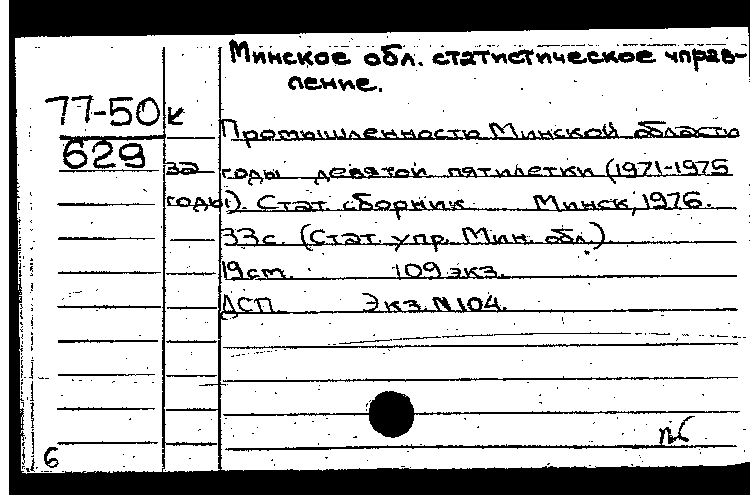 Минское обл. статистическое управ-
ление.
77-50 к
629
Промышленность Минской области
за годы девятой пятилетки (1971-1975
годы). Стат. сборник Минск, 1976.
33с. (Стат. упр. Мин. обл.)
19см. 109 экз.
ДСП Экз. N 104.
6